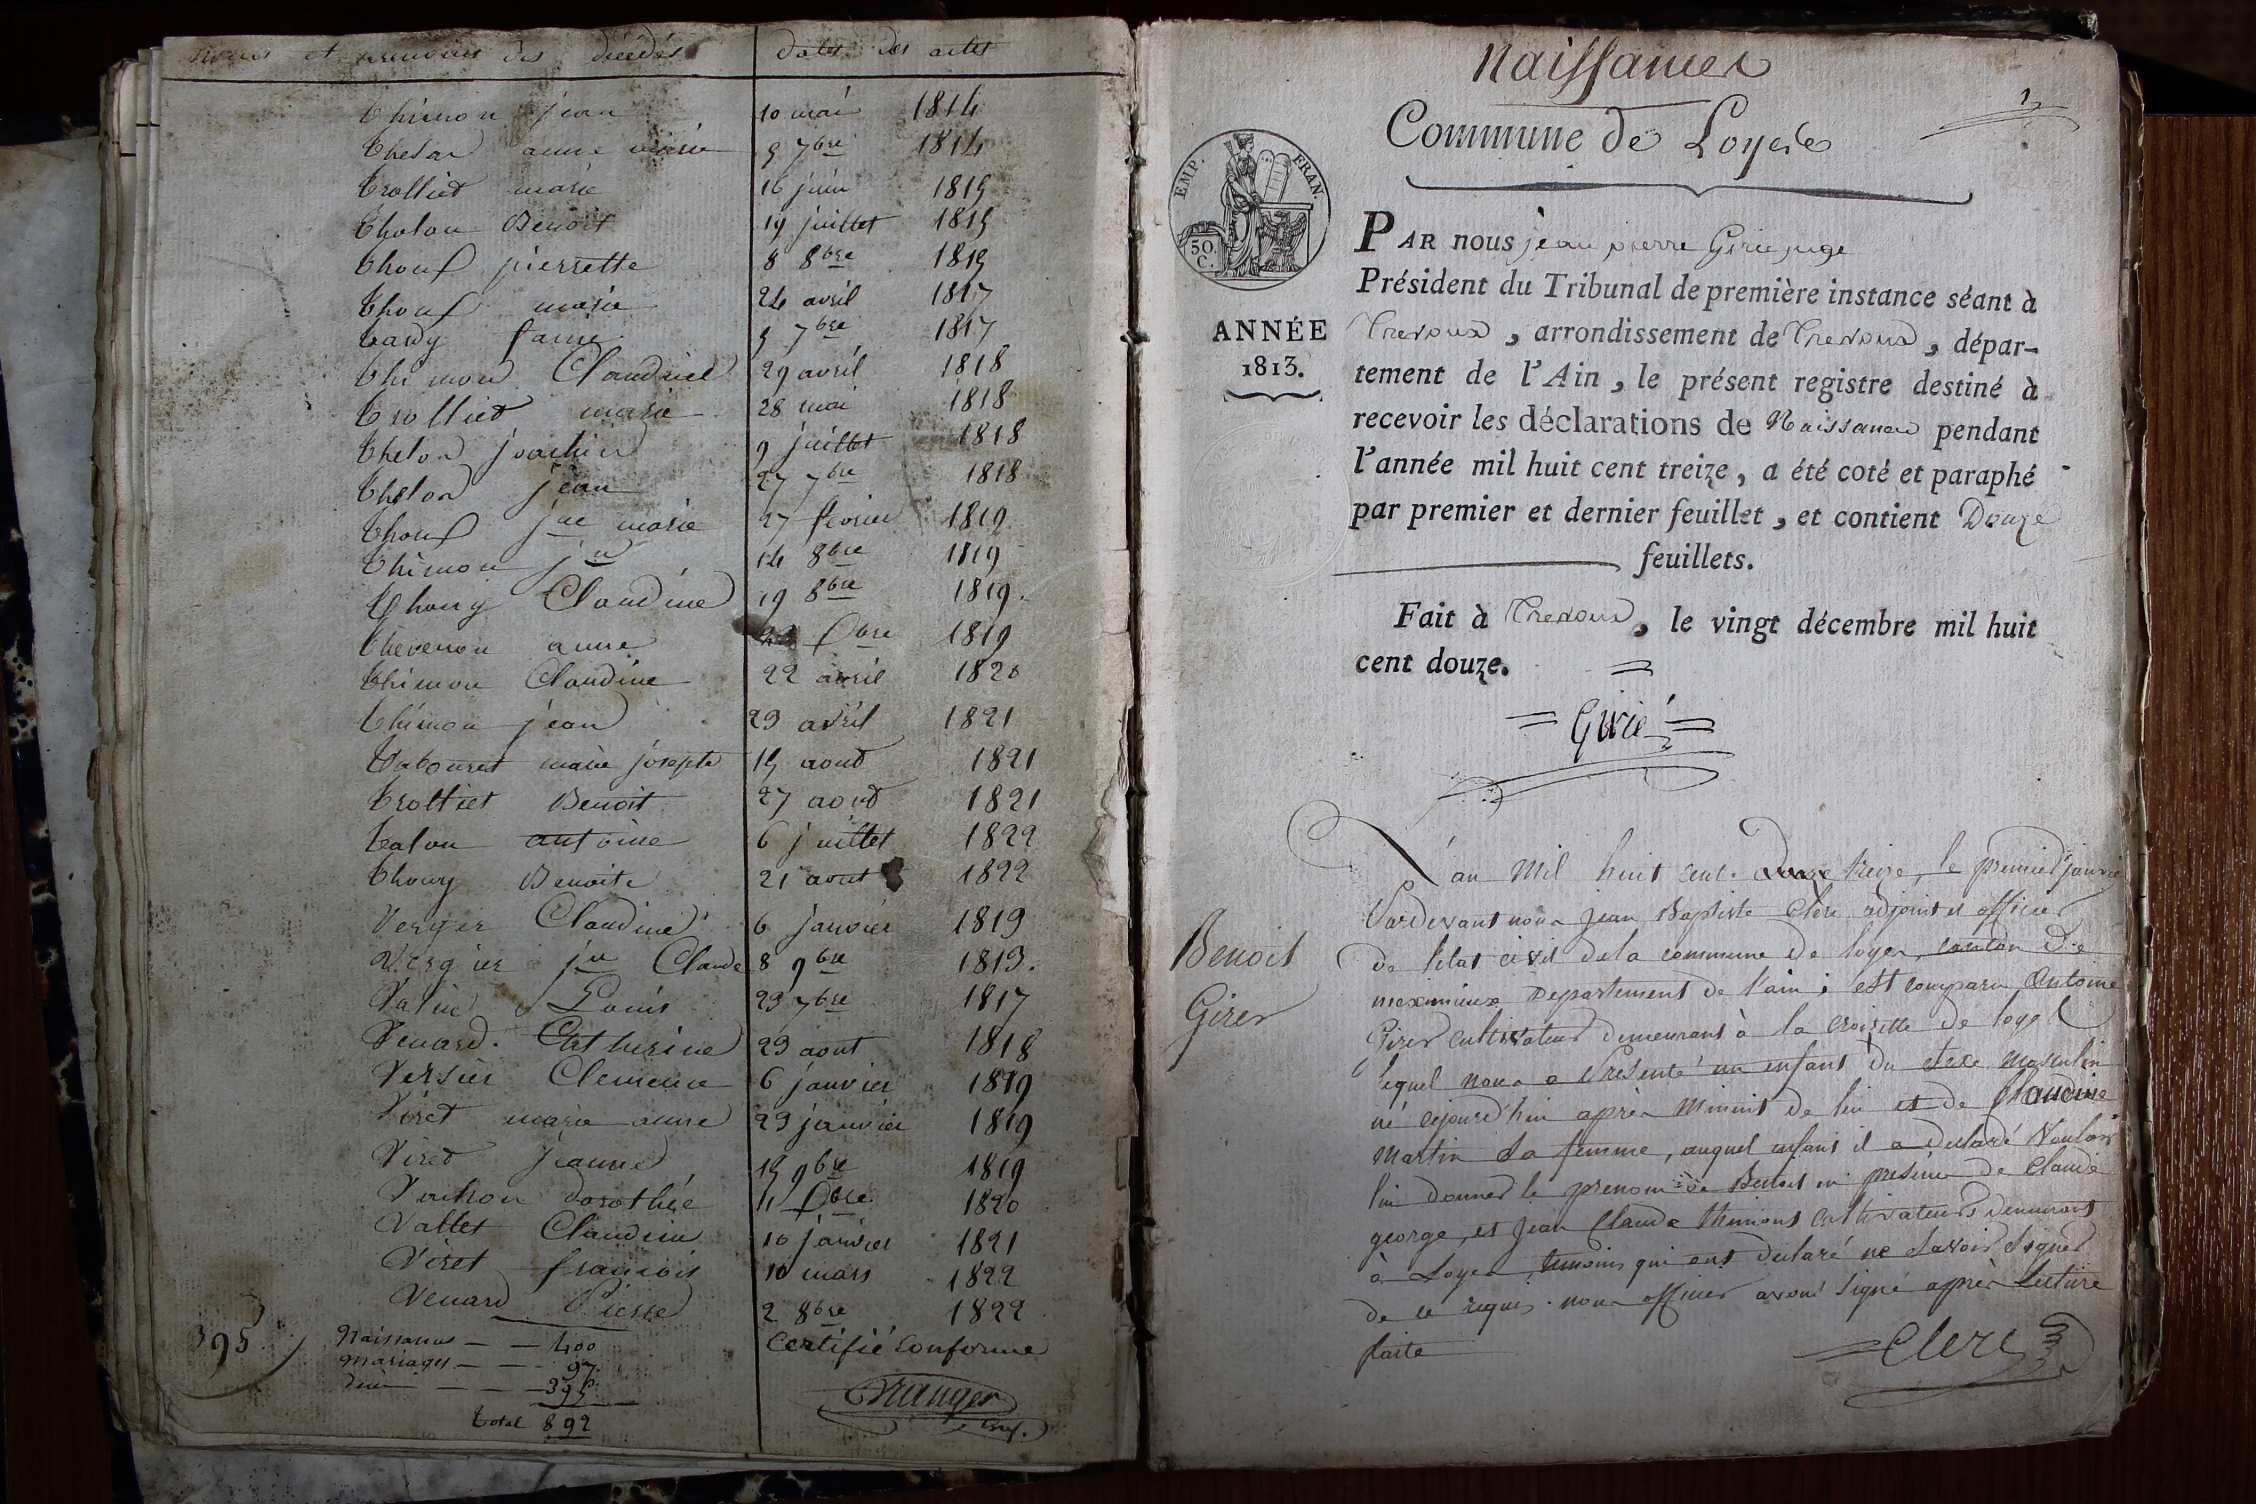 noms et prenoms des décédés dates des actes
Thimon jean 10 mai 1814
Thelon anne marie 5 7bre 1814
Trolliet marie 16 juin 1815
Tholon Benoit 19 juillet 1815
Thouf pierrette 8 8bre 1815
Thouf marie 24 avril 1817
Tardy 5 7bre 1817
Thimon Claudine 29 avril 1818
Trolliet marie 28 mai 1818
Thelon joachin 9 juillet 1818
Thelon jean 27 7bre 1818
Thouf jne marie 27 fevrier 1819
Thimon jn 14 8bre 1819
Thouy Claudine 19 8bre 1819.
Thevenon anne 1819
Thimon Claudine 22 avril 1820
Thimon jean 23 avril 1821
Tabouret marie josepte 15 aout 1821
Trolliet Benoit 27 aout 1821
Talon antoine 6 juillet 1822
Thouy Benoite 21 aout 1822
Verger Claudine 6 janvier 1813
Vergier jn Claude 8 9bre 1813.
Louis 23 7bre 1817
Venard. Catherine 23 aout 1818
Versier Clemence 6 janvier 1819
Viret marie anne 23 janvier 1819
Viret jeanne 15 9bre 1819
Vachon dorothée 11 Xbre 1820
Vallet Claudine 10 janvier 1821
Viret francois 10 mars 1822
Venard Pierre 2 8bre 1822
395
Naissances — 400
Mariages — 97
395
Total 892
Certifié Conforme
Naissances
1
Commune de Loyes
EMP. FRAN.
50 C.
ANNÉE
1813.
PAR nous jean pierre Girié juge
Président du Tribunal de première instance séant à
Trevoux, arrondissement de Trevoux, dépar-
tement de l'Ain, le présent registre destiné à
recevoir les déclarations de Naissances pendant
l'année mil huit cent treize, a été coté et paraphé
par premier et dernier feuillet, et contient Douze
feuillets.
Fait à Trevoux, le vingt décembre mil huit
cent douze.
Girié
Benoit
Girer
L'an Mil huit cent treize, le premier janvier
Pardevant nous jean Baptiste Clerc adjoint et officier
de l'etat civil de la commune de loyes, canton de
meximieux Departement de l'ain; est comparu Antoine
Girer cultivateur demeurant à la croisette de loyes
lequel nous a Presenté un enfant du Sexe masculin
né cejourd'hui après Minuit de lui et de Claudine
Martin Sa femme, auquel enfant il a declaré Vouloir
lui donner le prenom de Benoit en presence de Claude
george, et jean Claude thimont cultivateurs demeurant
à Loyes, temoins qui ont declaré ne Savoir Signer
de ce requis. nous officier avons Signé après Lecture
faite
Clerc